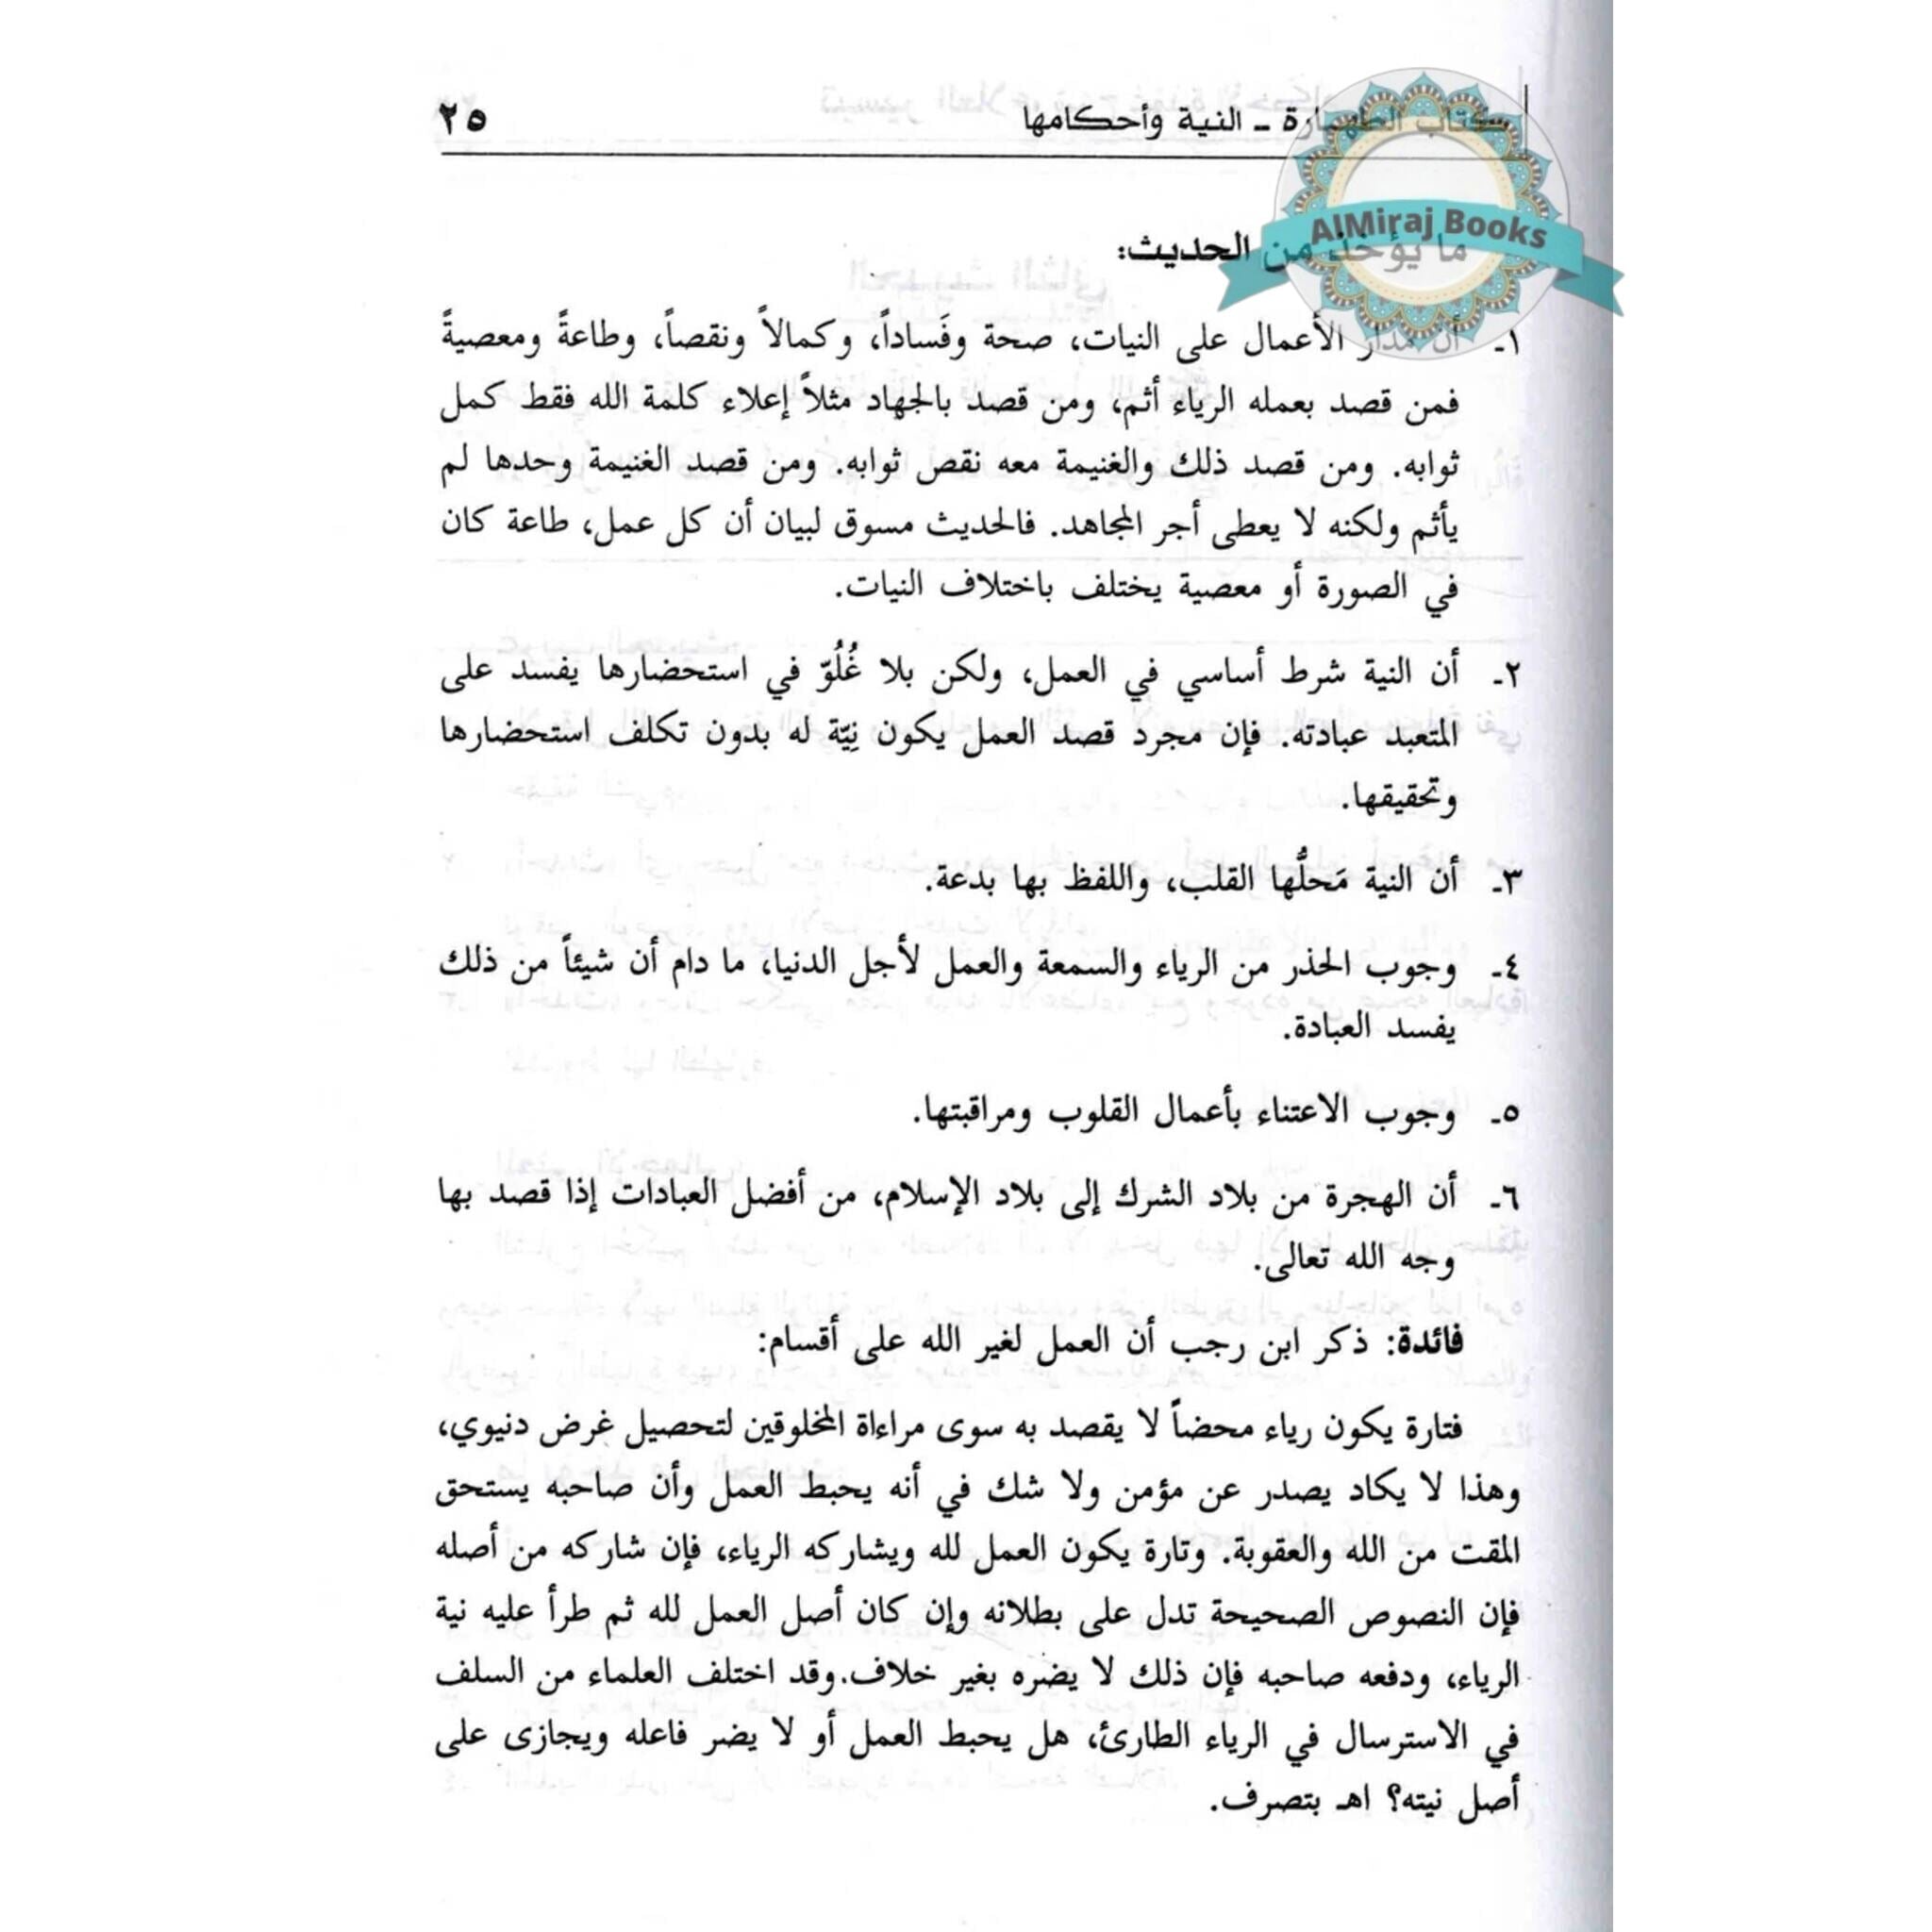 كتاب الطهارة ـ النية وأحكامها ٢٥
AlMiraj Books
ما يؤخذ من الحديث:
١ـ أن مدار الأعمال على النيات، صحة وفَساداً، وكمالاً ونقصاً، وطاعةً ومعصيةً
فمن قصد بعمله الرياء أثم، ومن قصد بالجهاد مثلاً إعلاء كلمة الله فقط كمل
ثوابه. ومن قصد ذلك والغنيمة معه نقص ثوابه. ومن قصد الغنيمة وحدها لم
يأثم ولكنه لا يعطى أجر المجاهد. فالحديث مسوق لبيان أن كل عمل، طاعة كان
في الصورة أو معصية يختلف باختلاف النيات.
٢ـ أن النية شرط أساسي في العمل، ولكن بلا غُلُوّ في استحضارها يفسد على
المتعبد عبادته. فإن مجرد قصد العمل يكون نِيّة له بدون تكلف استحضارها
وتحقيقها.
٣ـ أن النية مَحلُّها القلب، واللفظ بها بدعة.
٤ـ وجوب الحذر من الرياء والسمعة والعمل لأجل الدنيا، ما دام أن شيئاً من ذلك
يفسد العبادة.
٥ـ وجوب الاعتناء بأعمال القلوب ومراقبتها.
٦ـ أن الهجرة من بلاد الشرك إلى بلاد الإسلام، من أفضل العبادات إذا قصد بها
وجه الله تعالى.
فائدة: ذكر ابن رجب أن العمل لغير الله على أقسام:
فتارة يكون رياء محضاً لا يقصد به سوى مراءاة المخلوقين لتحصيل غرض دنيوي،
وهذا لا يكاد يصدر عن مؤمن ولا شك في أنه يحبط العمل وأن صاحبه يستحق
المقت من الله والعقوبة. وتارة يكون العمل لله ويشاركه الرياء، فإن شاركه من أصله
فإن النصوص الصحيحة تدل على بطلانه وإن كان أصل العمل لله ثم طرأ عليه نية
الرياء، ودفعه صاحبه فإن ذلك لا يضره بغير خلاف.وقد اختلف العلماء من السلف
في الاسترسال في الرياء الطارئ، هل يحبط العمل أو لا يضر فاعله ويجازى على
أصل نيته؟ اهـ بتصرف.